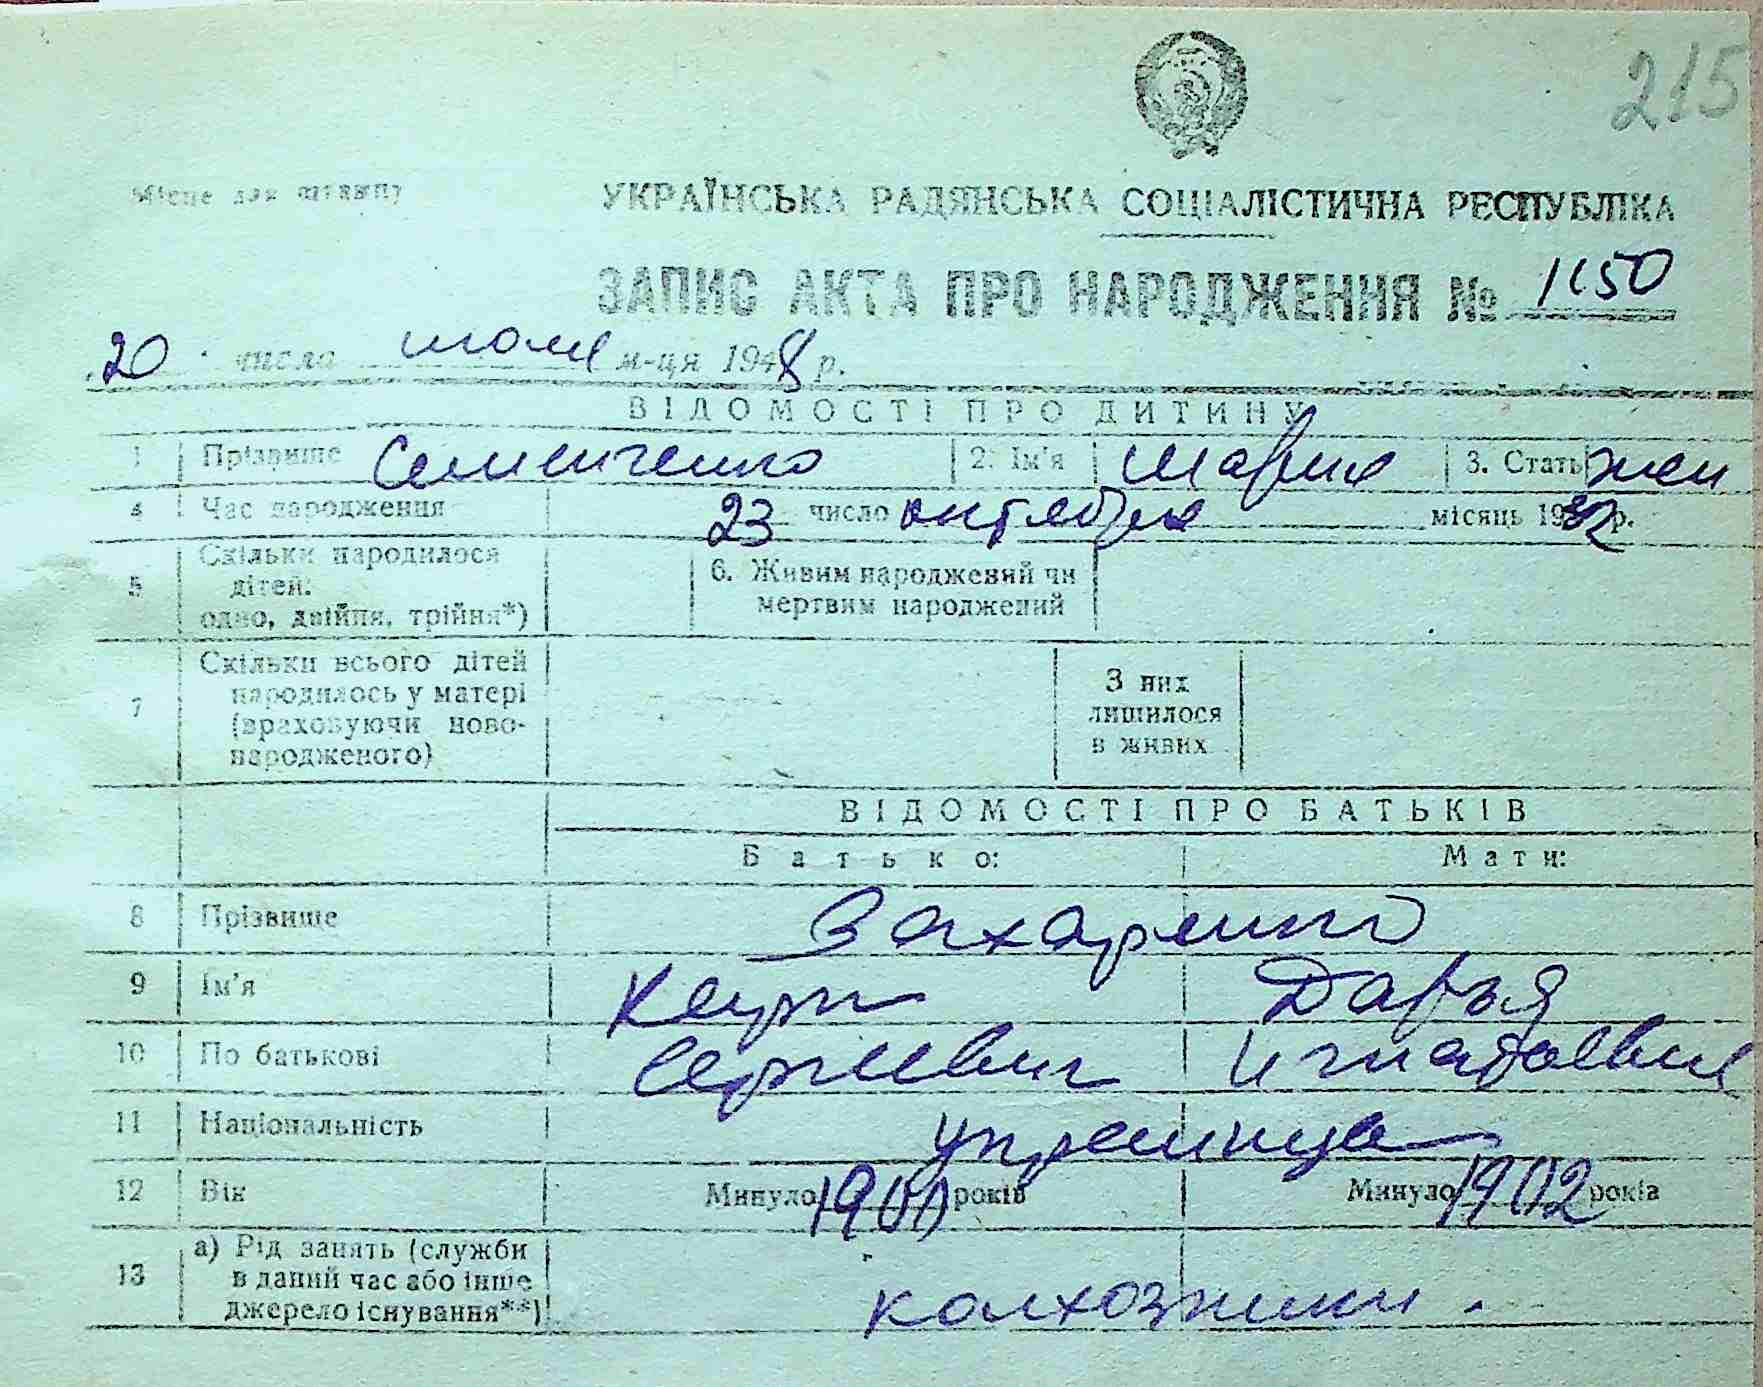 215
Місце для штампу
УКРАЇНСЬКА РАДЯНСЬКА СОЦІАЛІСТИЧНА РЕСПУБЛІКА
ЗАПИС АКТА ПРО НАРОДЖЕННЯ № 1150
20 числа июля м-ця 1948 р.
ВІДОМОСТІ ПРО ДИТИНУ
1 Прізвище Семенченко 2. Ім'я Мария 3. Стать жен
4 Час народження 23 число октября місяць 1932 р.
5 Скільки народилося дітей: одно, двійня, трійня*) 6. Живим народжений чи мертвим народжений
7 Скільки всього дітей народилось у матері (враховуючи новонародженого) З них лишилося в живих
ВІДОМОСТІ ПРО БАТЬКІВ
Батько: Мати:
8 Прізвище Захаренко
9 Ім'я Дарья
10 По батькові Сергеевич Игнатьевна
11 Національність украинца
12 Вік Минуло 1900 років Минуло 1902 років
13 а) Рід занять (служби в даний час або інше джерело існування**) колхозники.